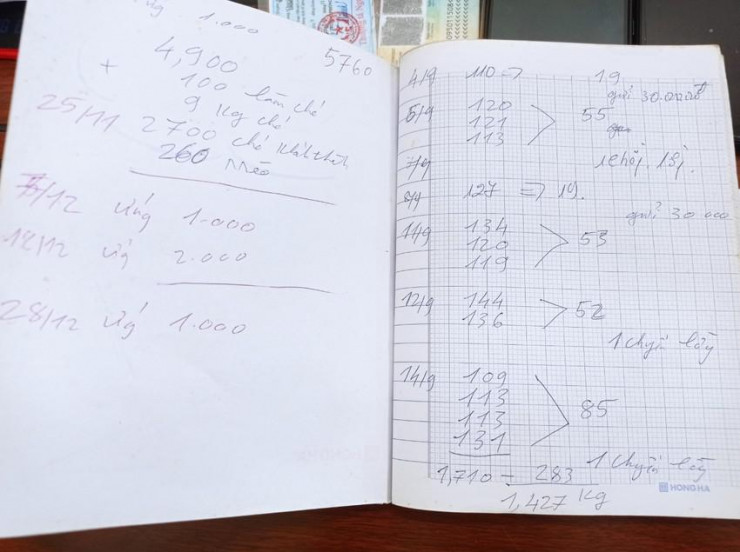 1.000
4,900
5760
+
100 làm chó
9 kg chó
25/11
2700 chó
260 Mèo
7/12 ứng 1.000
12/12 ứng 2.000
28/12 ứng 1.000
4/9 110 => 19
gửi 30.000
5/9 120
121 55
113
7/9
8/9 127 => 19.
gửi 30 000
11/9 134
120 53
119
12/9 144
136 52
1 chuyến lấy
14/9 109
113
113 85
131
1 chuyến lấy
1,710 - 283
1,427 kg
HONG HA